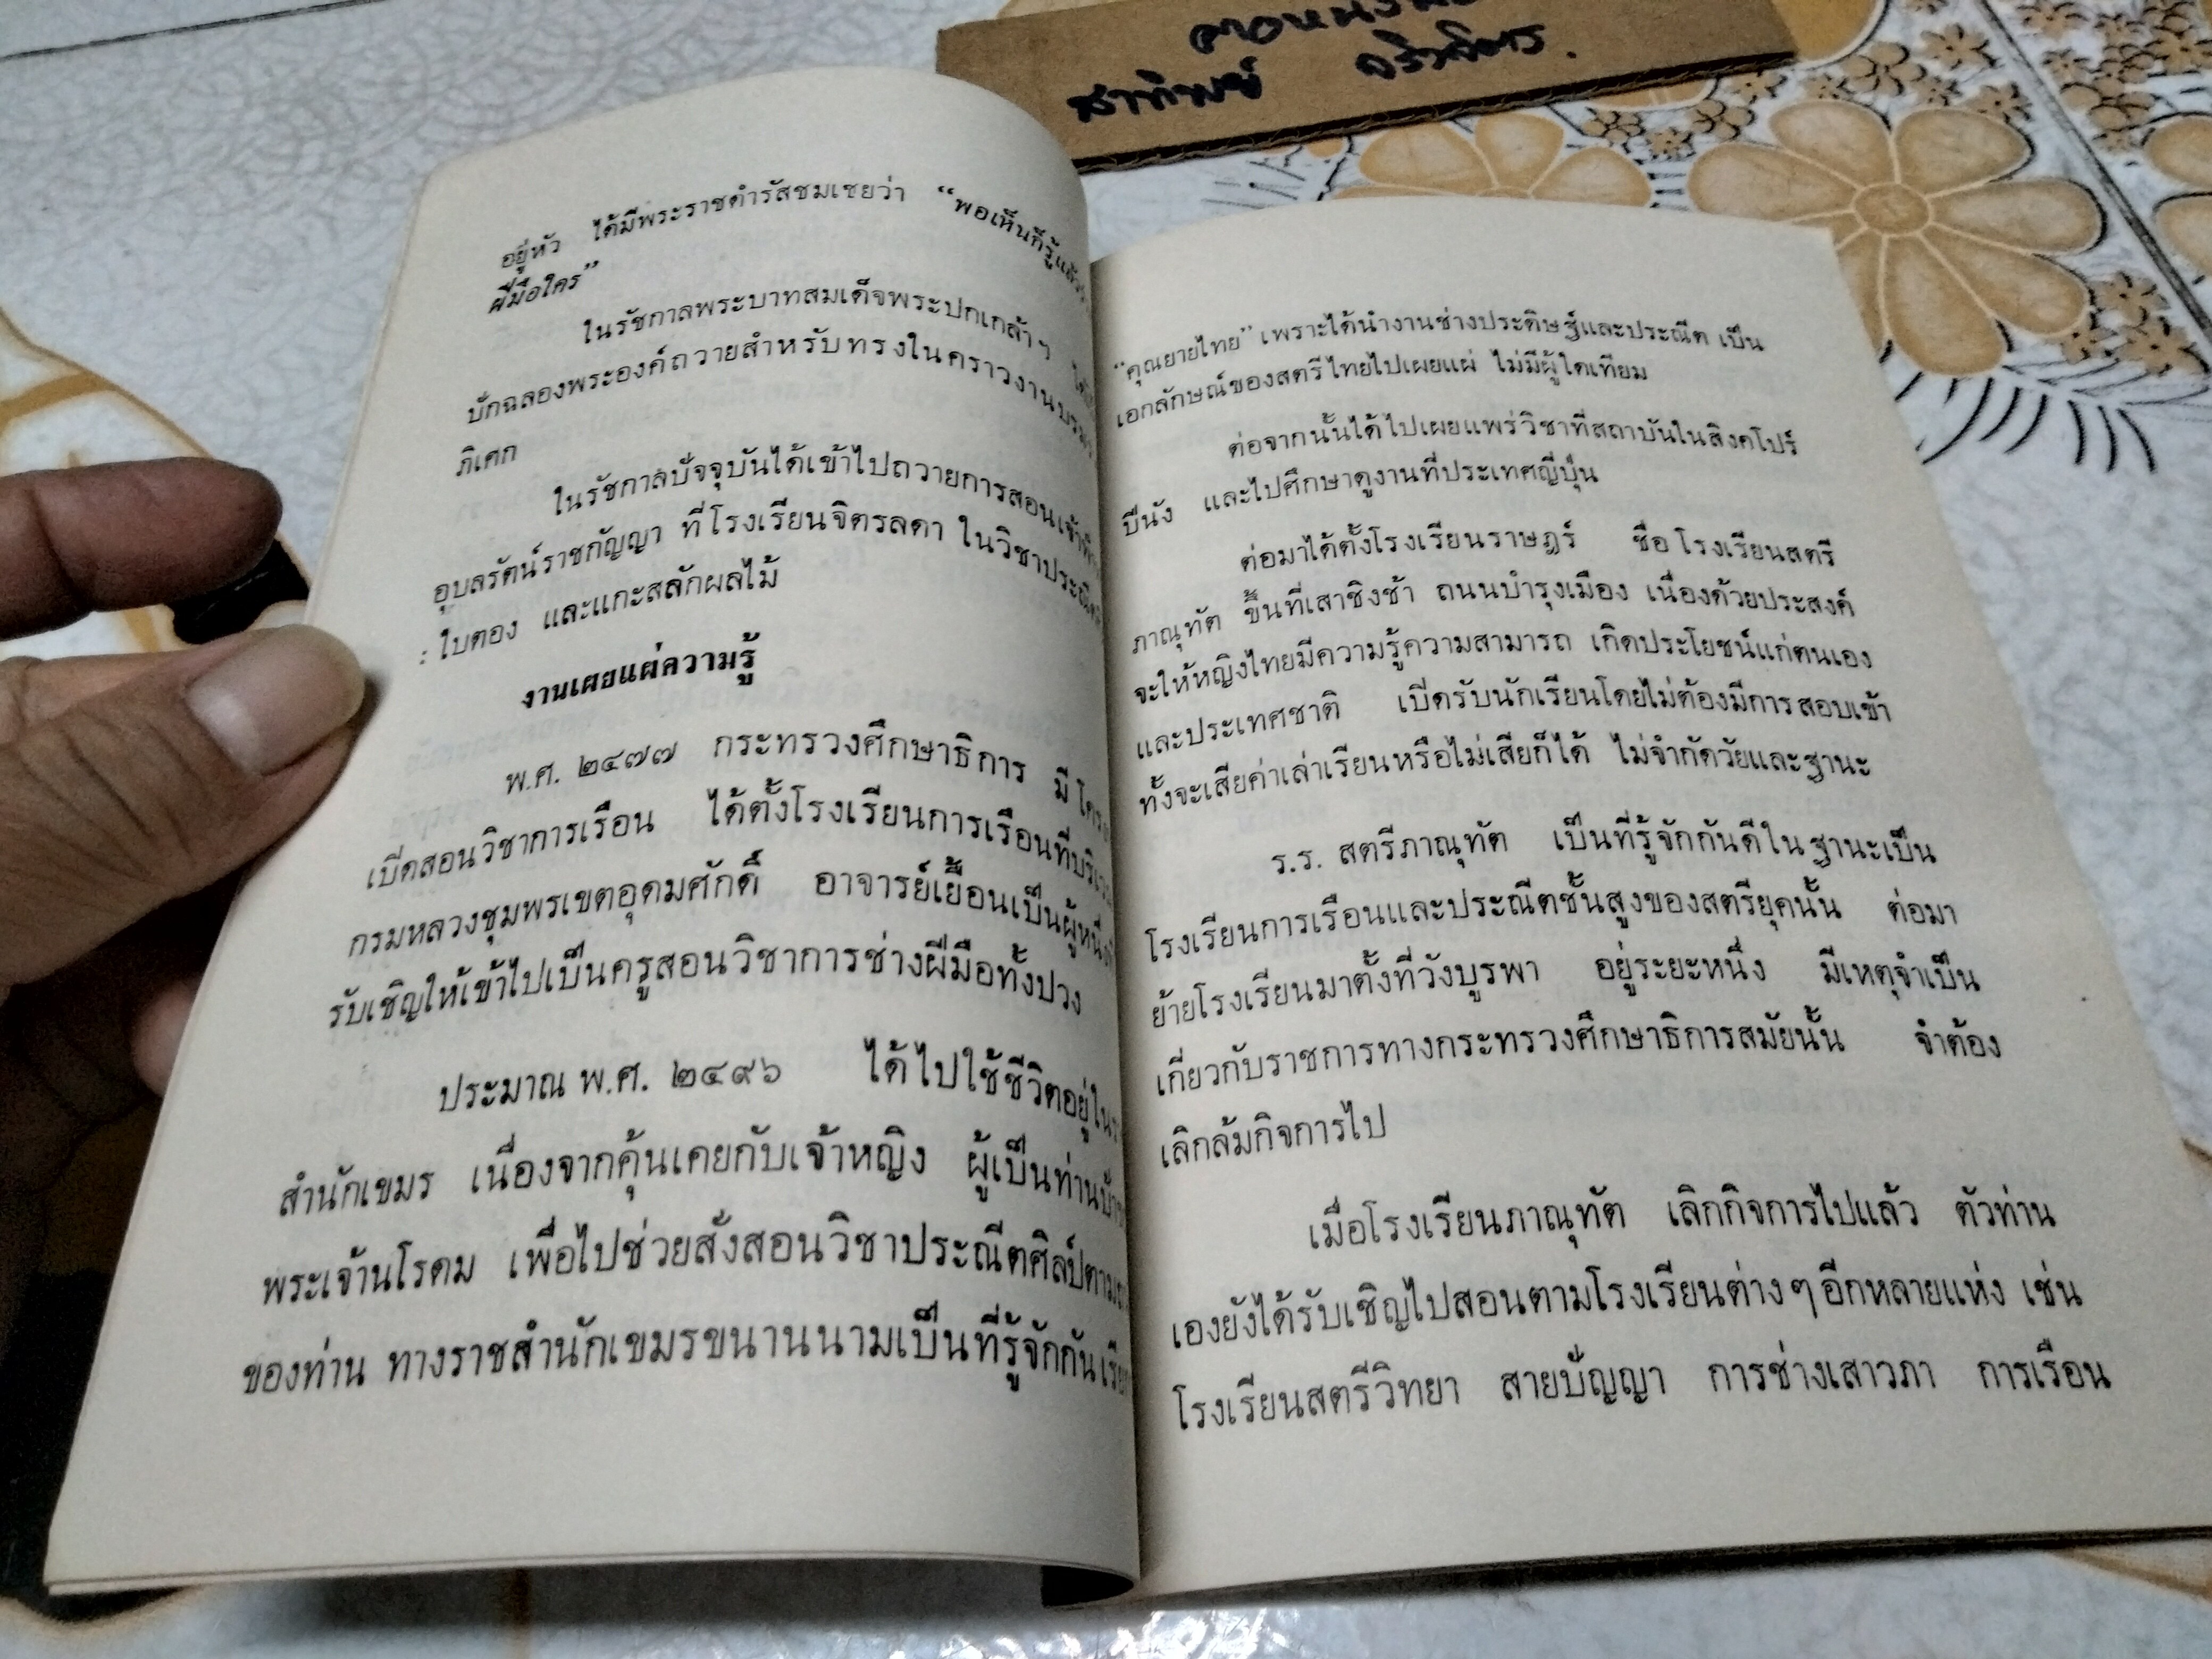 สาทิพย์
อยู่หัว ได้มีพระราชดำรัสชมเชยว่า “พอเห็นก็รู้แล้ว
ฝีมือใคร”
ในรัชกาลพระบาทสมเด็จพระปกเกล้าฯ
ปักฉลองพระองค์ถวายสำหรับทรงในคราวงานบรม
ภิเศก
ในรัชกาลปัจจุบันได้เข้าไปถวายการสอนเจ้าฟ้า
อุบลรัตน์ราชกัญญา ที่โรงเรียนจิตรลดา ในวิชาประณีต
: ใบตอง และแกะสลักผลไม้
งานเผยแผ่ความรู้
พ.ศ. ๒๔๗๗ กระทรวงศึกษาธิการ มีโครง
เปิดสอนวิชาการเรือน ได้ตั้งโรงเรียนการเรือนที่บริเวณ
กรมหลวงชุมพรเขตอุดมศักดิ์ อาจารย์เยื้อนเป็นผู้หนึ่ง
รับเชิญให้เข้าไปเป็นครูสอนวิชาการช่างฝีมือทั้งปวง
ประมาณ พ.ศ. ๒๔๙๖ ได้ไปใช้ชีวิตอยู่ใน
สำนักเขมร เนื่องจากคุ้นเคยกับเจ้าหญิง ผู้เป็นท่านป้า
พระเจ้านโรดม เพื่อไปช่วยสั่งสอนวิชาประณีตศิลป์ตาม
ของท่าน ทางราชสำนักเขมรขนานนามเป็นที่รู้จักกัน
“คุณยายไทย” เพราะได้นำงานช่างประดิษฐ์และประณีต เป็น
เอกลักษณ์ของสตรีไทยไปเผยแผ่ ไม่มีผู้ใดเทียม
ต่อจากนั้นได้ไปเผยแพร่วิชาที่สถาบันในสิงคโปร์
ปีนัง และไปศึกษาดูงานที่ประเทศญี่ปุ่น
ต่อมาได้ตั้งโรงเรียนราษฎร์ ชื่อ โรงเรียนสตรี
ภาณุทัต ขึ้นที่เสาชิงช้า ถนนบำรุงเมือง เนื่องด้วยประสงค์
จะให้หญิงไทยมีความรู้ความสามารถ เกิดประโยชน์แก่ตนเอง
และประเทศชาติ เปิดรับนักเรียนโดยไม่ต้องมีการสอบเข้า
ทั้งจะเสียค่าเล่าเรียนหรือไม่เสียก็ได้ ไม่จำกัดวัยและฐานะ
ร.ร. สตรีภาณุทัต เป็นที่รู้จักกันดีในฐานะเป็น
โรงเรียนการเรือนและประณีตชั้นสูงของสตรียุคนั้น ต่อมา
ย้ายโรงเรียนมาตั้งที่วังบูรพา อยู่ระยะหนึ่ง มีเหตุจำเป็น
เกี่ยวกับราชการทางกระทรวงศึกษาธิการสมัยนั้น จำต้อง
เลิกล้มกิจการไป
เมื่อโรงเรียนภาณุทัต เลิกกิจการไปแล้ว ตัวท่าน
เองยังได้รับเชิญไปสอนตามโรงเรียนต่างๆอีกหลายแห่ง เช่น
โรงเรียนสตรีวิทยา สายปัญญา การช่างเสาวภา การเรือน